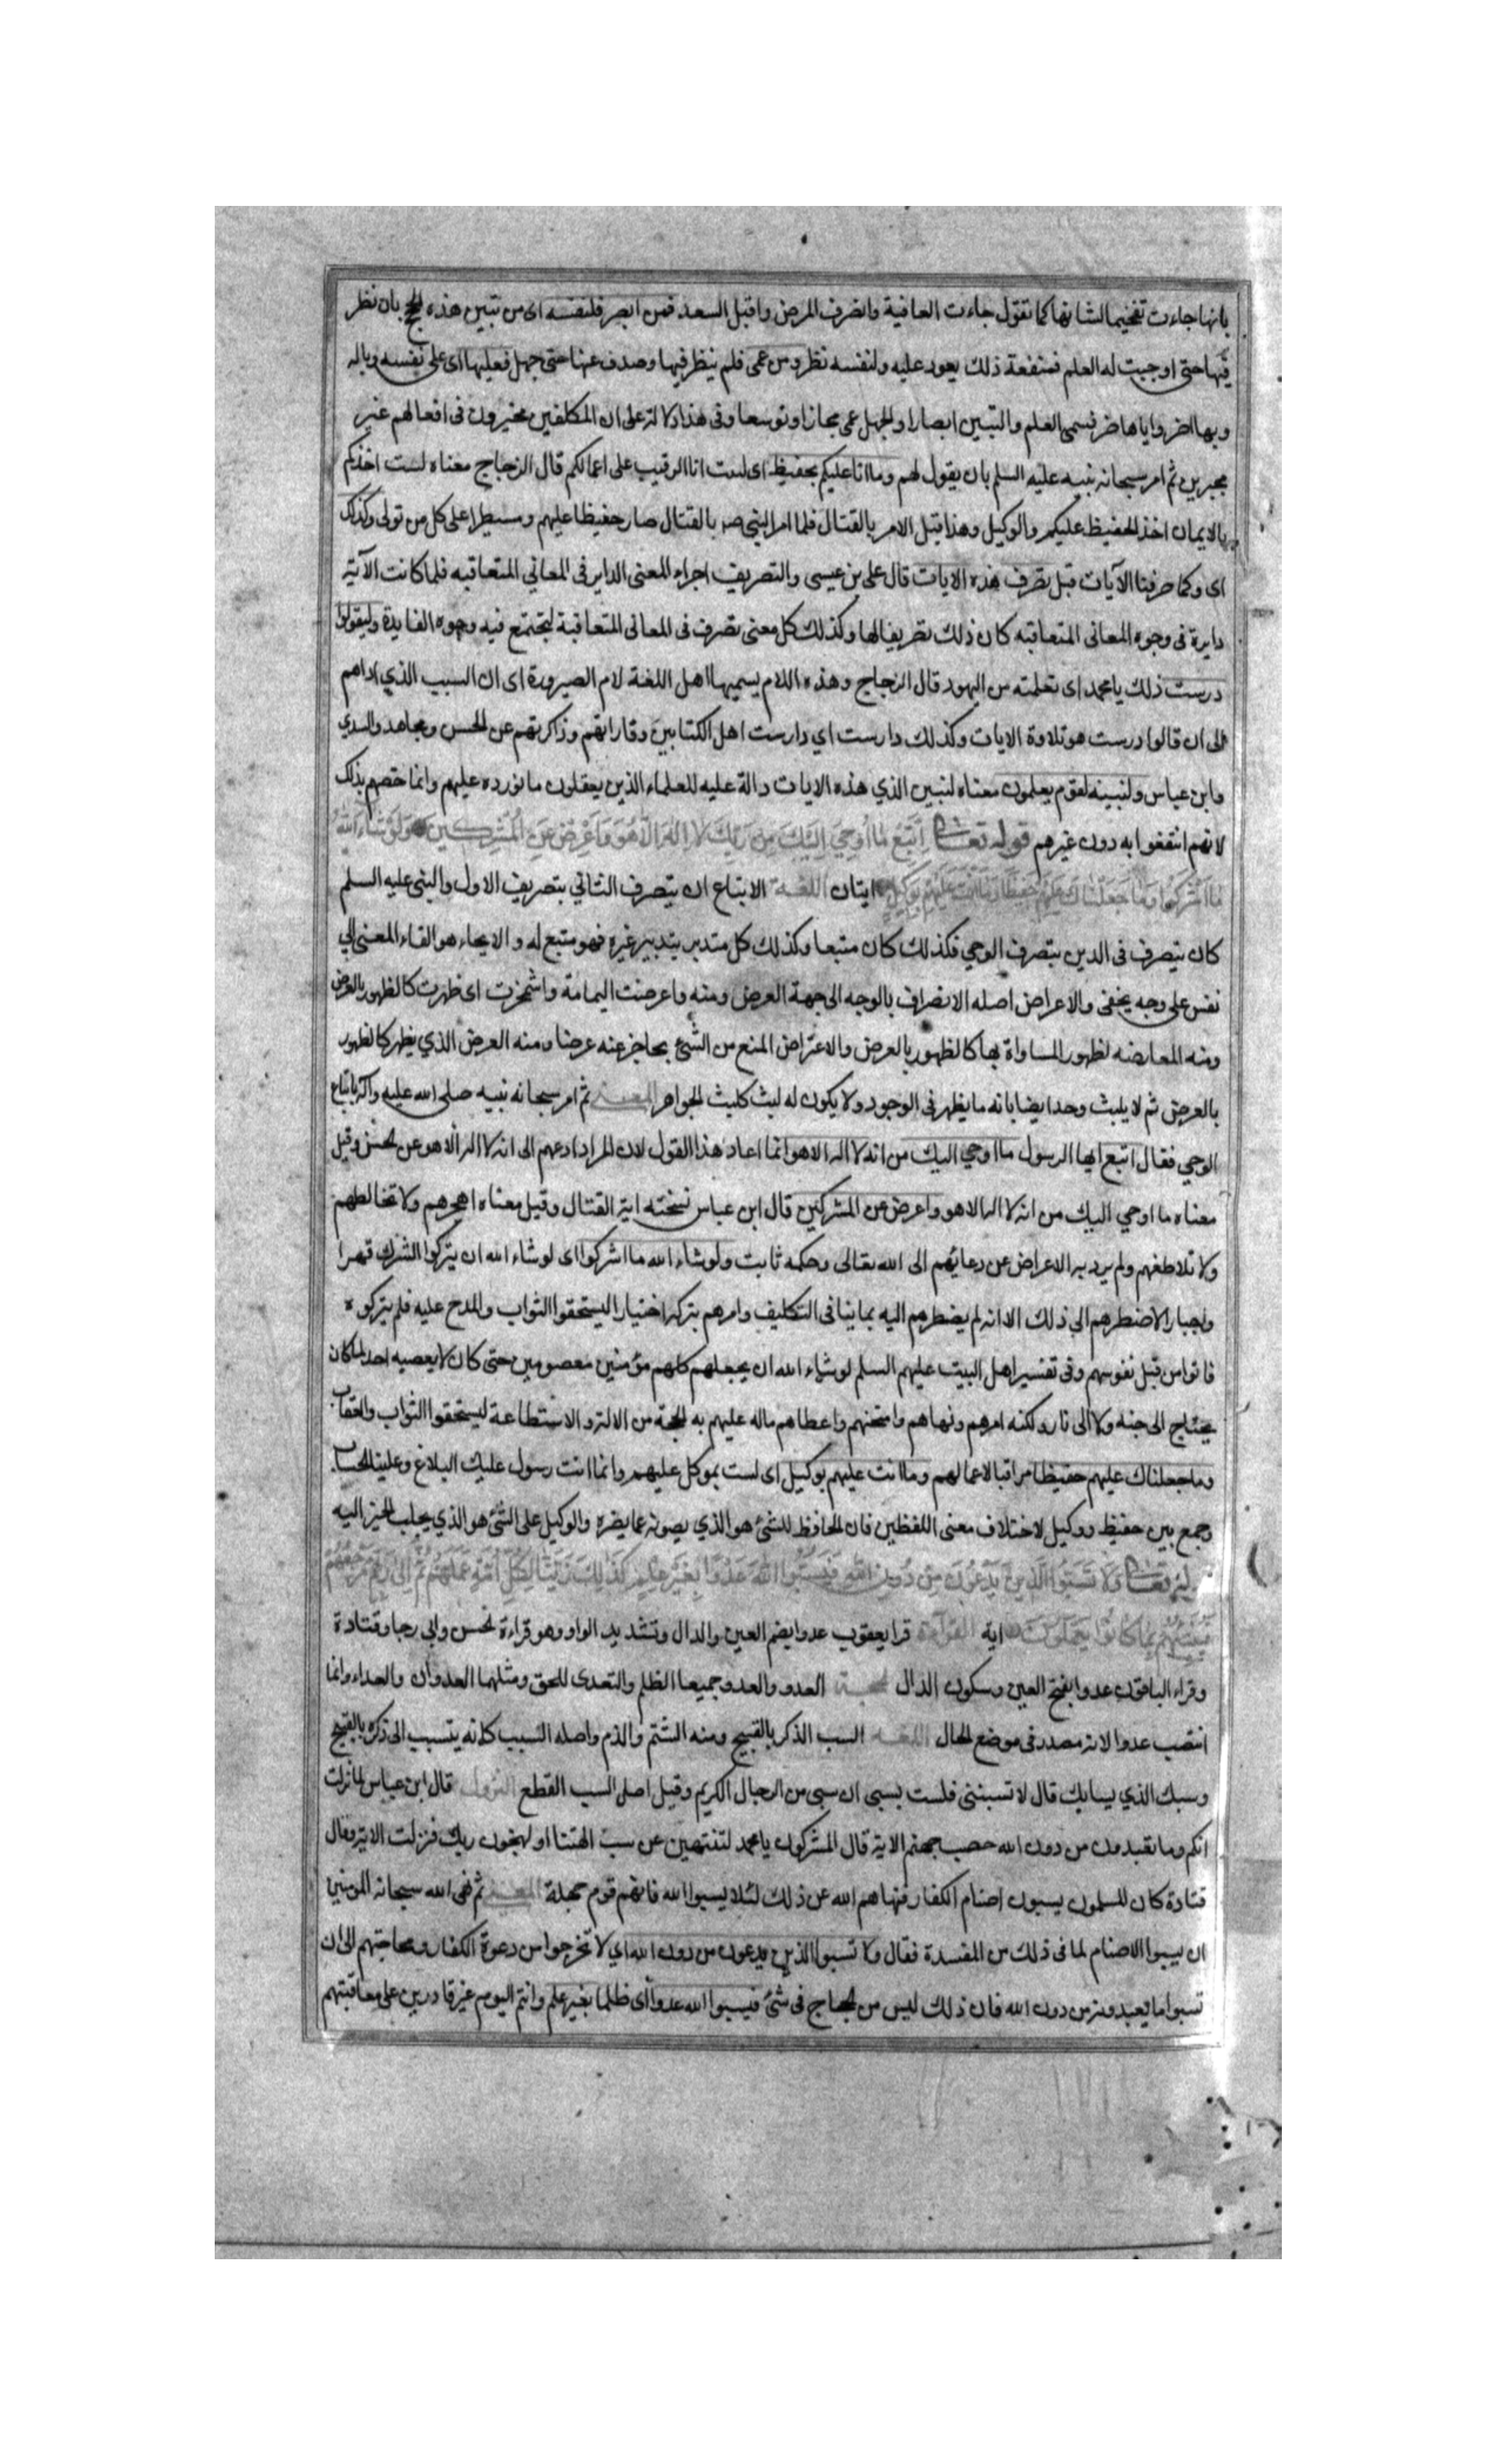 بانها جاءت تفخيما لشانها كما تقول جاءت العافية وانصرف المرض واقبل السعد فمن ابصر فلنفسه اى من تبين هذه الحجج بان نظر
فيها حتى اوجبت له العلم فمنفعة ذلك يعود عليه ولنفسه نظر ومن عمى فلم ينظر فيها وصدف عنها حتى جهل فعليها اى على نفسه وباله
وبها اضر واياها ضر فسمى العلم والتبيين ابصارا والجهل عمى مجازا وتوسعا وفى هذا دلالة على ان المكلفين مخيرون فى افعالهم غير
مجبرين ثم امر سبحانه نبيه عليه السلم بان يقول لهم وما انا عليكم بحفيظ اى لست انا الرقيب على اعمالكم قال الزجاج معناه لست اخذكم
بالايمان اخذ الحفيظ عليكم والوكيل وهذا قبل الامر بالقتال فلما امر النبى صه بالقتال صار حفيظا عليهم ومسيطرا على كل من تولى وكذلك
اى وكما صرفنا الآيات قبل نصرف هذه الايات قال على بن عيسى والتصريف اجراء المعنى الداير فى المعاني المتعاقبه فلما كانت الآية
دايرة فى وجوه المعانى المتعاقبه كان ذلك تصريفا لها وكذلك كل معنى تصرف فى المعانى المتعاقبة لتجتمع فيه وجوه الفايدة وليقولوا
درست ذلك يا محمد اى تعلمته من اليهود قال الزجاج وهذه اللام يسميها اهل اللغة لام الصيرورة اى ان السبب الذي اداهم
الى ان قالوا درست هو تلاوة الايات وكذلك دارست اي دارست اهل الكتابين وقاراتهم وذاكرتهم عن الحسن ومجاهد والسدي
وابن عباس ولنبينه لقوم يعلمون معناه لنبين الذي هذه الايات دالة عليه للعلماء الذين يعقلون ما نورده عليهم وانما خصهم بذلك
لانهم انتفعوا به دون غيرهم قوله تعالى اتَّبِعْ مَا أُوحِيَ إِلَيْكَ مِنْ رَبِّكَ لَا إِلَهَ إِلَّا هُوَ وَأَعْرِضْ عَنِ الْمُشْرِكِينَ وَلَوْ شَاءَ اللَّهُ
مَا أَشْرَكُوا وَمَا جَعَلْنَاكَ عَلَيْهِمْ حَفِيظًا وَمَا أَنْتَ عَلَيْهِمْ بِوَكِيلٍ ايتان اللغة الاتباع ان يتصرف الثاني بتصريف الاول والنبى عليه السلم
كان يتصرف فى الدين بتصرف الوحي فكذلك كان متبعا وكذلك كل متدبر بتدبير غيره فهو متبع له والايحاء هو القاء المعنى الي
نفس على وجه يخفى والاعراض اصله الانصراف بالوجه الى جهة العرض ومنه واعرضت اليمامة واشمخرت اى ظهرت كالظهور بالعرض
ومنه المعارضه لظهور المساواة بها كالظهور بالعرض والاعتراض المنع من الشئ بحاجز عنه عرضا ومنه العرض الذي يظهر كالظهور
بالعرض ثم لا يلبث وحد ايضا بانه ما يظهر فى الوجود ولا يكون له لبث كلبث الجواهر المعنى ثم امر سبحانه نبيه صلى الله عليه وآله باتباع
الوحي فقال اتبع ايها الرسول ما اوحي اليك من انه لا اله الا هو انما اعاد هذا القول لان المراد ادعهم الى انه لا اله الا هو عن الحسن وقيل
معناه ما اوحي اليك من انه لا اله الا هو واعرض عن المشركين قال ابن عباس نسخته اية القتال وقيل معناه اهجرهم ولا تخالطهم
ولا تلاطفهم ولم يرد به الاعراض عن دعائهم الى الله تعالى وحكمه ثابت ولو شاء الله ما اشركوا اى لو شاء الله ان يتركوا الشرك قهرا
واجبارا لاضطرهم الي ذلك الا انه لم يضطرهم اليه بما ينافى التكليف وامرهم بتركه اختيارا ليستحقوا الثواب والمدح عليه فلم يتركوه
فاتوا من قبل نفوسهم وفى تفسير اهل البيت عليهم السلم لو شاء الله ان يجعلهم كلهم مؤمنين معصومين حتى كان لا يعصيه احد لما كان
يحتاج الى جنه ولا الى نار ولكنه امرهم ونهاهم وامتحنهم واعطاهم ماله عليهم به الحجة من الالة والاستطاعة ليستحقوا الثواب والعقاب
وما جعلناك عليهم حفيظا مراقبا لاعمالهم وما انت عليهم بوكيل اى لست بموكل عليهم وانما انت رسول عليك البلاغ وعلينا الحساب
وجمع بين حفيظ ووكيل لاختلاف معنى اللفظين فان الحافظ للشئ هو الذي يصونه عما يضره والوكيل على الشئ هو الذي يجلب الخير اليه
قوله تعالى وَلَا تَسُبُّوا الَّذِينَ يَدْعُونَ مِنْ دُونِ اللَّهِ فَيَسُبُّوا اللَّهَ عَدْوًا بِغَيْرِ عِلْمٍ كَذَلِكَ زَيَّنَّا لِكُلِّ أُمَّةٍ عَمَلَهُمْ ثُمَّ إِلَى رَبِّهِمْ مَرْجِعُهُمْ
فَيُنَبِّئُهُمْ بِمَا كَانُوا يَعْمَلُونَ اية القراءة قرا يعقوب عدوا بضم العين والدال وتشديد الواو وهو قراءة الحسن وابي رجا وقتادة
وقراء الباقون عدوا بفتح العين وسكون الدال الحجة العدو والعدو جميعا الظلم والتعدى للحق ومثلهما العدوان والعداء وانما
انتصب عدوا لانه مصدر فى موضع الحال اللغة السب الذكر بالقبيح ومنه الشتم والذم واصله السبب كانه يتسبب الى ذكره بالقبيح
وسبك الذي يسابك قال لا تسبننى فلست بسبى ان سبى من الرجال الكريم وقيل اصل السب القطع النزول قال ابن عباس لما نزلت
انكم وما تعبدون من دون الله حصب جهنم الاية قال المشركون يا محمد لتنتهين عن سب الهتنا او لنهجون ربك فنزلت الاية وقال
قتادة كان المسلمون يسبون اصنام الكفار فنهاهم الله عن ذلك لئلا يسبوا الله فانهم قوم جهلة المعنى ثم نهى الله سبحانه المومنين
ان يسبوا الاصنام لما فى ذلك من المفسدة فقال ولا تسبوا الذين يدعون من دون الله اي لا تخرجوا من دعوة الكفار ومحاجتهم الى ان
تسبوا ما يعبدونه من دون الله فان ذلك ليس من الحجاج فى شئ فيسبوا الله عدوا اى ظلما بغير علم وانتم اليوم غير قادرين على معاقبتهم